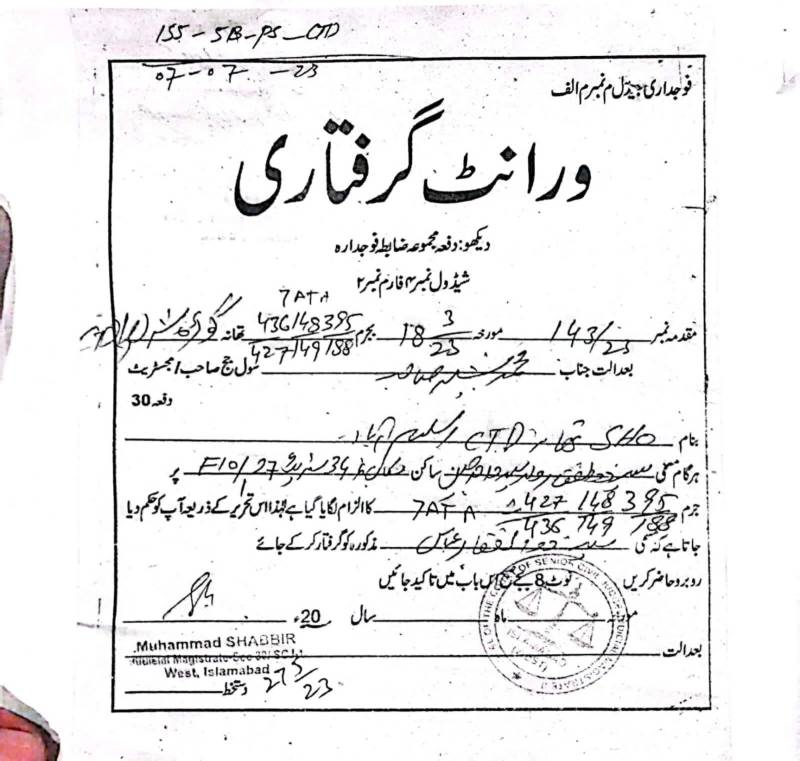 155-5B-PS-CTD
07-07-23
فوجداری جیڈل م نمبر م الف
ورانٹ گرفتاری
دیکھو: دفعہ مجموعہ ضابطہ فوجدارہ
شیڈول نمبر ۴ فارم نمبر ۲
7ATA
مقدمہ نمبر 143/23 مورخہ 18 3/23 بجرم 436/148/395 تھانہ
427/149/188
بعدالت جناب محمد شبیر صاحب سول جج صاحب/مجسٹریٹ
دفعہ 30
بنام SHO تھانہ CTD اسلام آباد
ہرگاہ مسمی ساکن مکان 34 سٹریٹ 27/F10 پر
جرم 427 148 395 7ATA کا الزام لگایا گیا ہے لہٰذا اس تحریر کے ذریعہ آپ کو حکم دیا
436 149 188
جاتا ہے کہ مسمی سید ذوالفقار عباس مذکورہ کو گرفتار کر کے جائے
روبرو حاضر کریں نوٹ 8 بجے صبح اس باب میں تاکید جائیں
مورخہ ماہ سال 20ء
Muhammad SHABBIR
بعدالت
Judicial Magistrate-Sec 30/
West, Islamabad
دستخط 27 5/23